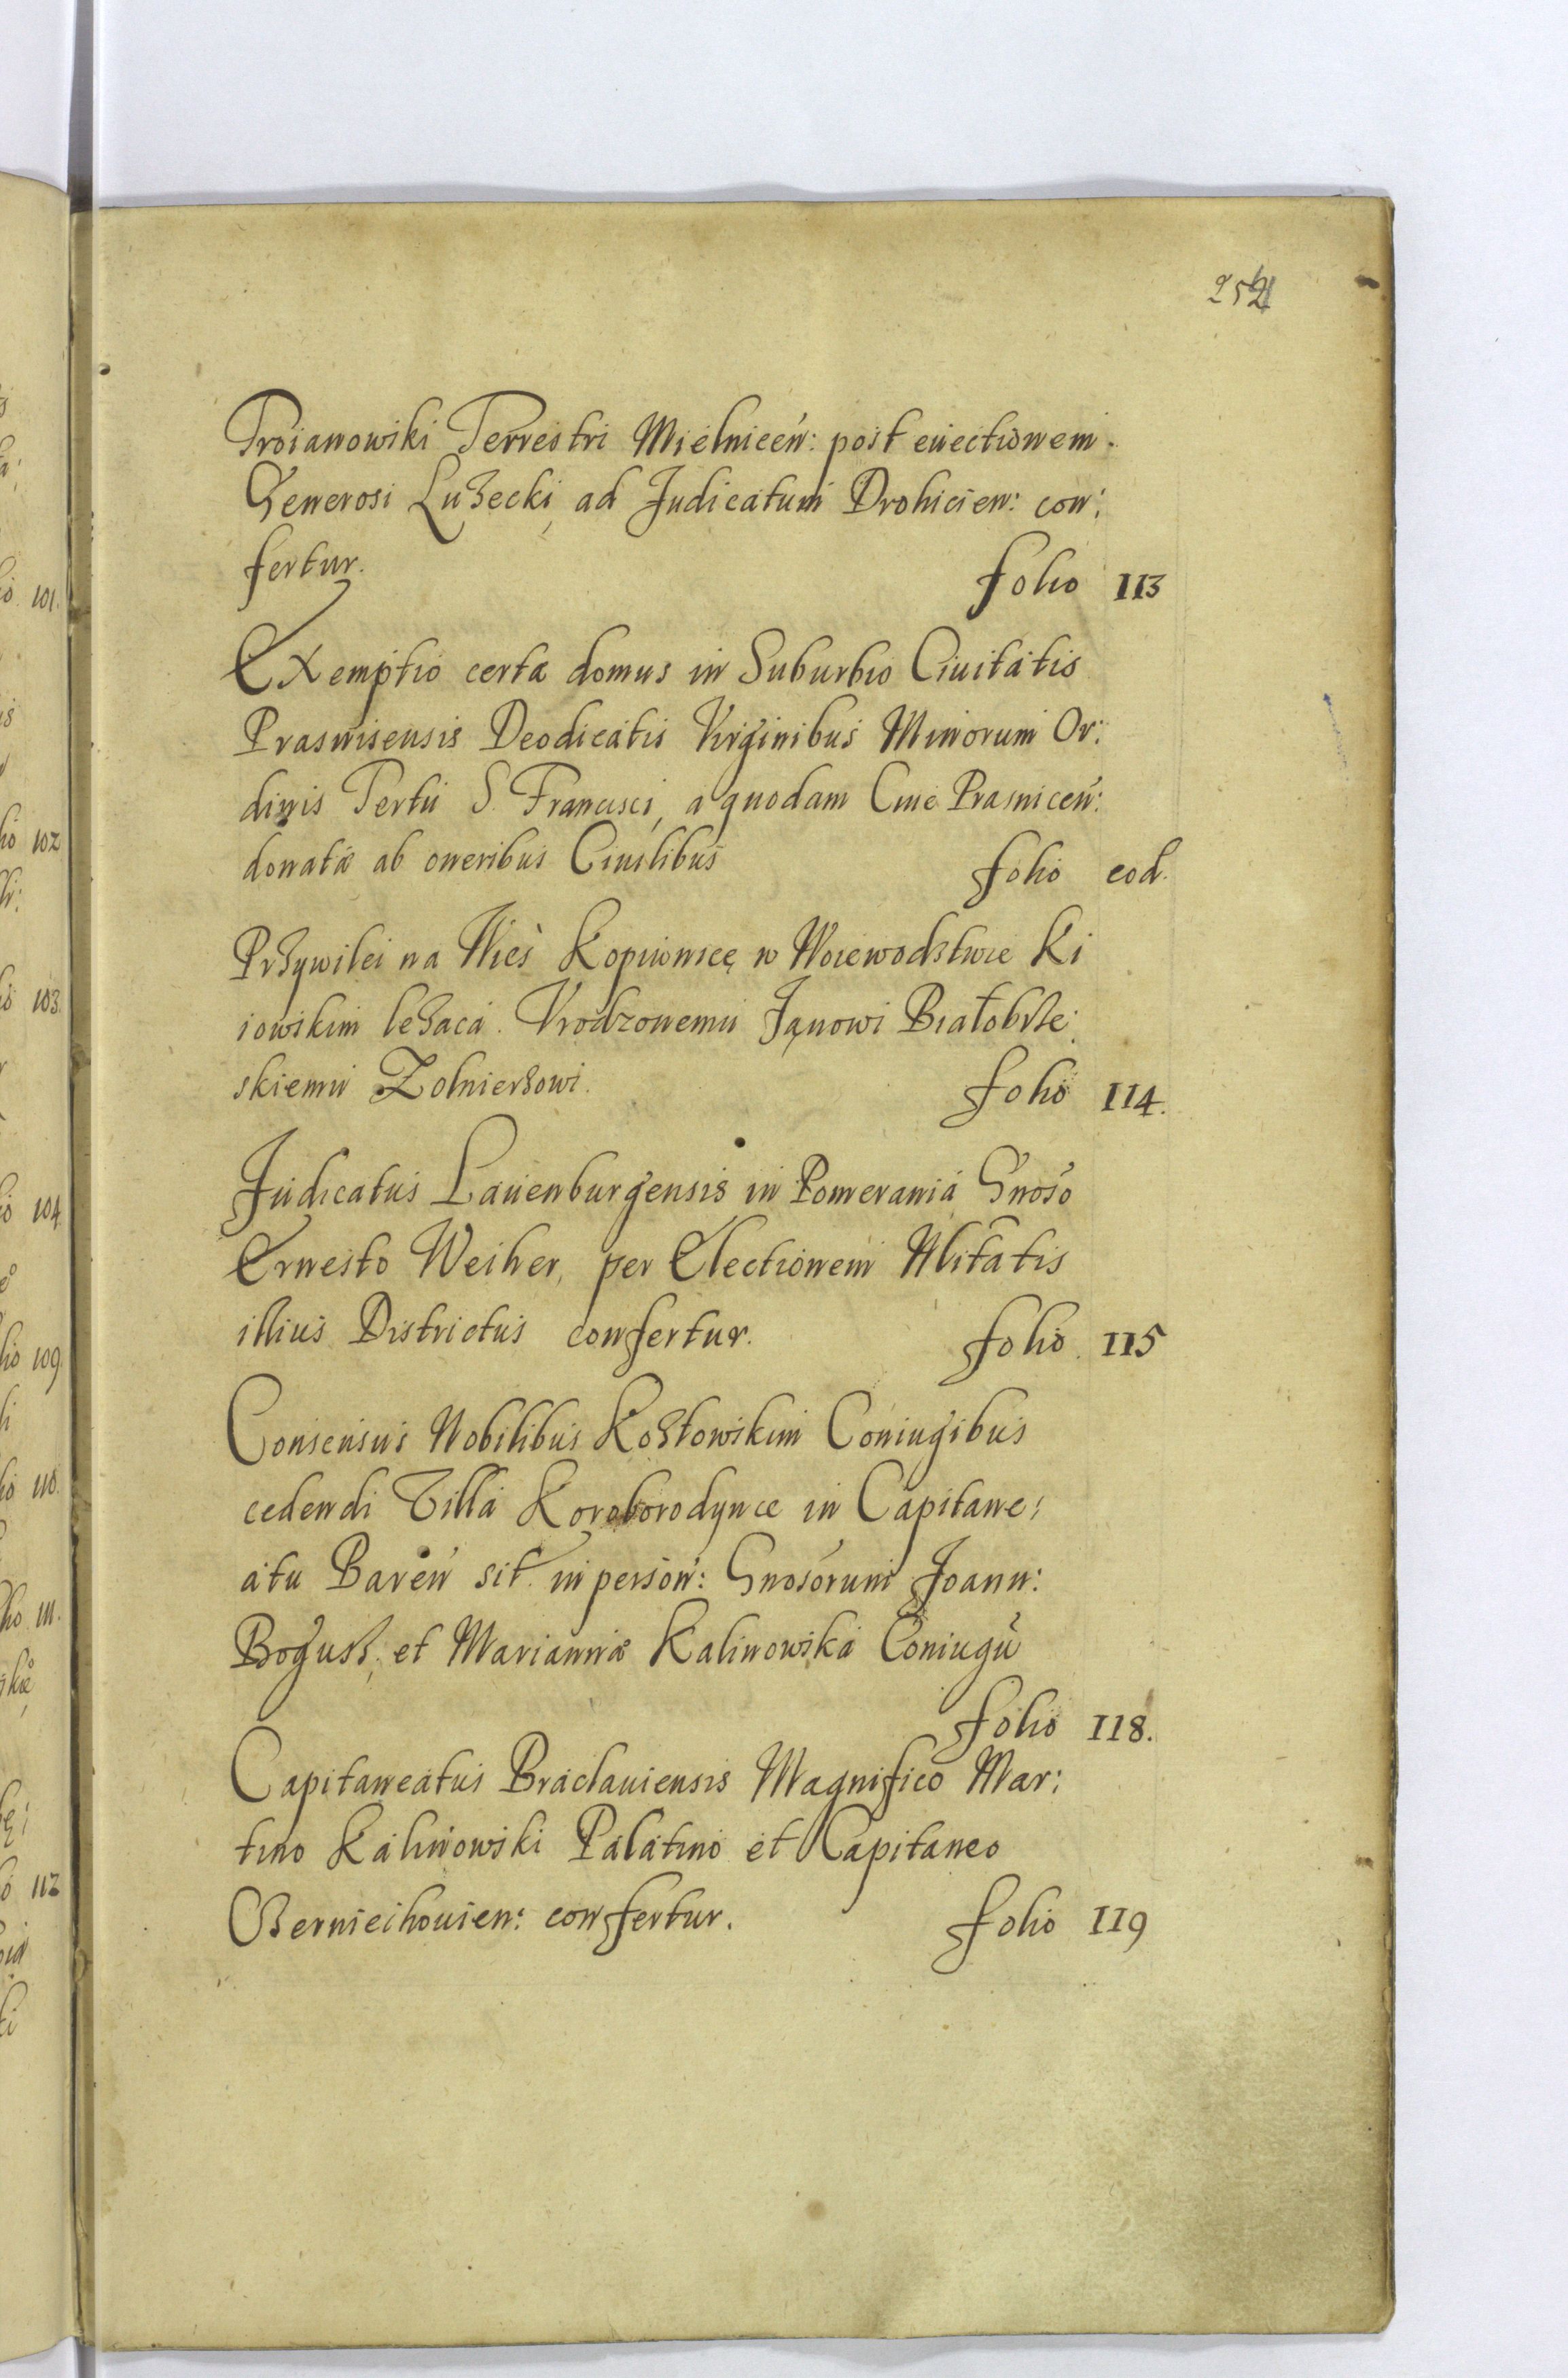 252
Troianowski Terrestri Mielniceń: post euectionem.
Generosi Luzecki, ad Judicatum Drohicien: con:
fertur.
folio 113
Exemptio certæ domus in Suburbio Ciuitatis
Prasnisensis Deodicatis Virginibus Minorum Or:
dinis Tertii S. Francisci, a quodam Ciue Prasniceń:
donatæ ab oneribus Ciuilibus
folio eod.
Przywilei na Wieś Kopiowicę w Woiewodztwie Ki
iowskim lezaca. Vrodzonemu Janowi Białobrze:
skiemu Zolnierzowi.
folio 114.
Judicatus Lauenburgensis in Pomerania Gnoso
Ernesto Weiher, per Electionem Nlitatis
illius Districtus confertur.
folio 115
Consensus Nobilibus Kozłowskim Coniugibus
cedendi Villa Koroborodynce in Capitane:
atu Bareń sit. in person: Gnosorum Joann:
Bogusz, et Mariannæ Kalinowska Coniugū
folio 118.
Capitaneatus Braclauiensis Magnifico Mar:
tino Kalinowski Palatino et Capitaneo
Czerniechouien: confertur.
folio 119
101.
102
103.
104
109.
110.
111.
112